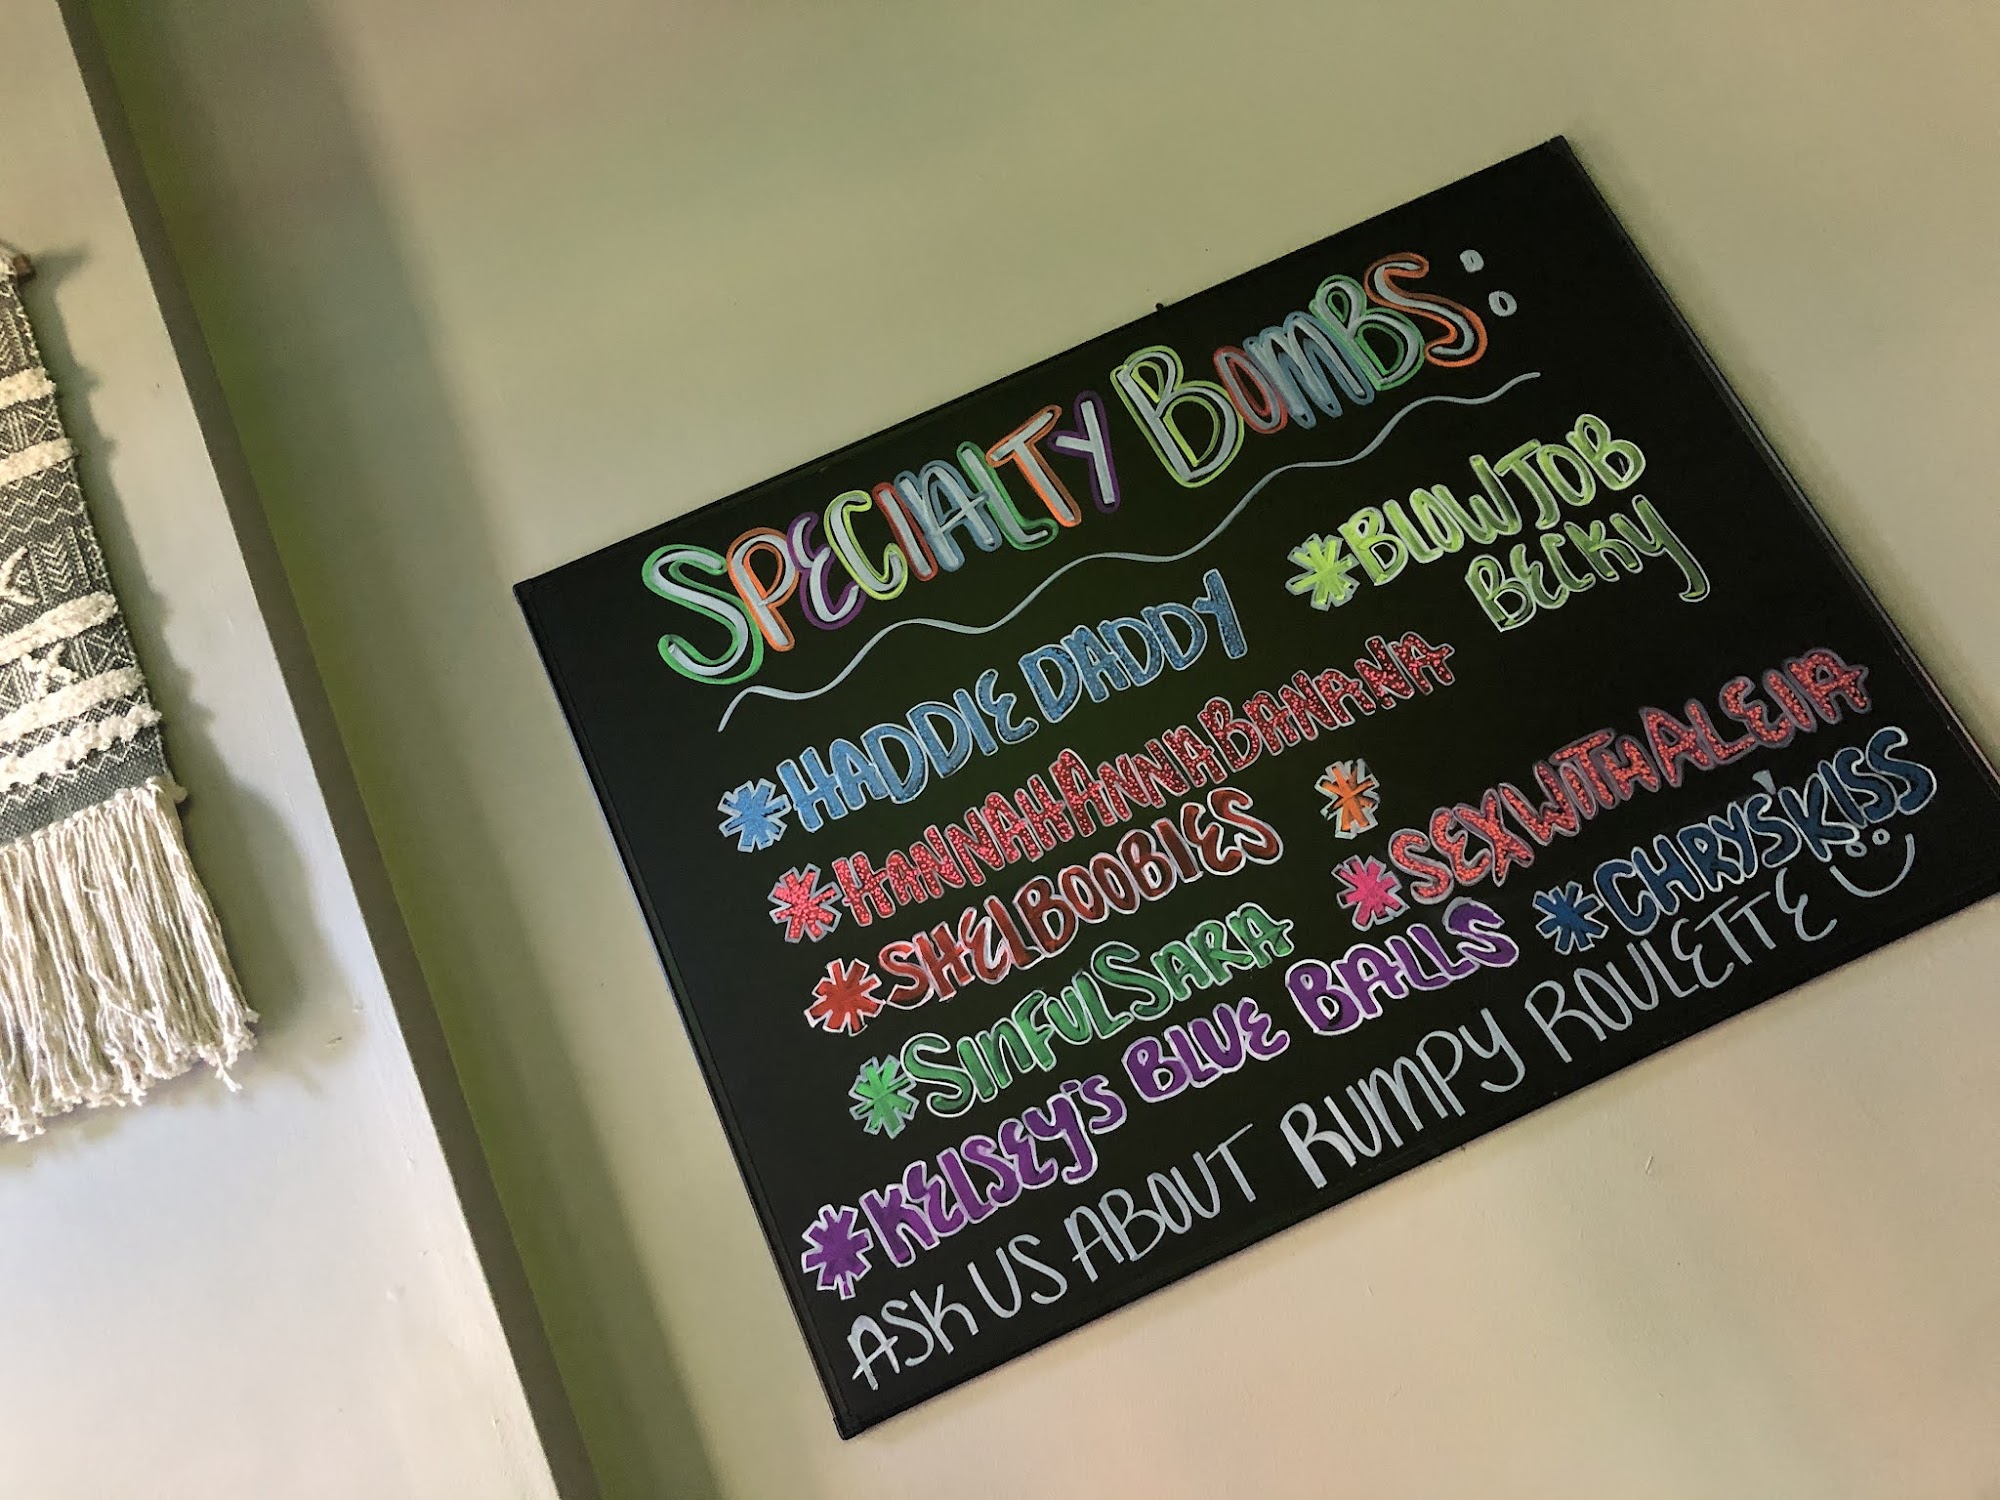 SPECIALTY BOMBS:
*HADDIE DADDY
*BLOWJOB
BECKY
*HANNAHANNABANANA
*SHELBOOBIES
*
*SEXWITHALENA
*SINFULSARA
*CHRYS'KISS
*KELSEY'S BLUE BALLS
ASK US ABOUT RUMPY ROULETTE